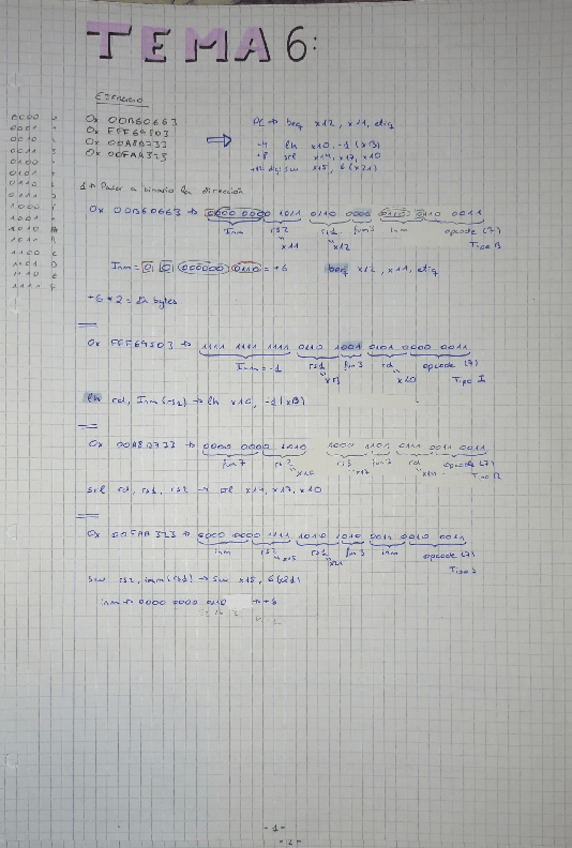 TEMA 6:
EJERCICIO
0x 00B60663
0x FFF69503
0x 00A8D733
0x 00FAA323
PC → beq x12, x11, etiq
+4 lh x10, -1 (x13)
+8 srl x14, x17, x10
+12 sw x15, 6 (x21)
1º Pasar a binario la dirección
0x 00B60663 → 0000 0000 1011 0110 0000 0110 0110 0011
Inm rs2 rs1 fun3 inm opcode (7)
x11 x12 Tipo B
Inm = 0 0 000000 0110 = +6 beq x12, x11, etiq
+6 * 2 = 12 bytes
0x FFF69503 → 1111 1111 1111 0110 1001 0101 0000 0011
Inm = -1 rs1 fun3 rd opcode (7)
x13 x10 Tipo I
lh rd, Inm (rs1) → lh x10, -1 (x13)
0x 00A8D733 → 0000 0000 1010 1000 1101 0111 0011 0011
fun7 rs2 rs1 fun3 rd opcode (7)
x10 x17 x14 Tipo R
srl rd, rs1, rs2 → srl x14, x17, x10
0x 00FAA323 → 0000 0000 1111 1010 1010 0011 0010 0011
inm rs2 rs1 fun3 inm opcode (7)
x15 x21 Tipo S
sw rs2, imm (rs1) → sw x15, 6 (x21)
inm → 0000 0000 0110 → +6
- 1 -
- 2 -